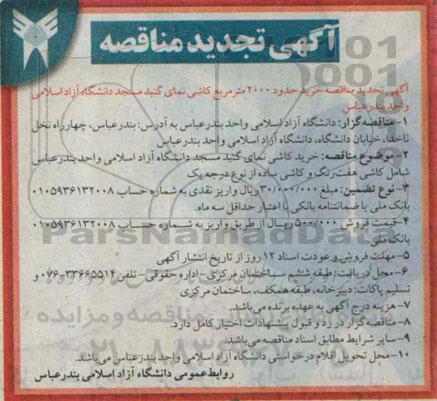 آگهی تجدید مناقصه
آگهی تجدید مناقصه خرید حدود ۲۰۰۰ مترمربع کاشی نمای گنبد مسجد دانشگاه آزاد اسلامی
واحد بندرعباس
۱- مناقصه گزار: دانشگاه آزاد اسلامی واحد بندرعباس به آدرس: بندرعباس، چهارراه نخل
ناخدا، خیابان دانشگاه، دانشگاه آزاد اسلامی واحد بندرعباس
۲- موضوع مناقصه: خرید کاشی نمای گنبد مسجد دانشگاه آزاد اسلامی واحد بندرعباس
شامل کاشی هفت رنگ و کاشی ساده از نوع درجه یک
۳- نوع تضمین: مبلغ ۳۰/۰۰۰/۰۰۰ ریال واریز نقدی به شماره حساب ۰۱۰۵۹۳۶۱۳۲۰۰۸
بانک ملی یا ضمانتنامه بانکی با اعتبار حداقل سه ماه.
۴- قیمت فروش ۵۰۰/۰۰۰ ریال از طریق واریز به شماره حساب ۰۱۰۵۹۳۶۱۳۲۰۰۸
بانک ملی
۵- مهلت فروش و عودت اسناد ۱۲ روز از تاریخ انتشار آگهی
۶- محل دریافت: طبقه ششم ساختمان مرکزی - اداره حقوقی - تلفن ۳۳۶۶۵۵۱۴-۰۷۶ و
تسلیم پاکات: دبیرخانه، طبقه همکف، ساختمان مرکزی
۷- هزینه درج آگهی به عهده برنده می باشد.
۸- مناقصه گزار در رد و قبول پیشنهادات اختیار کامل دارد.
۹- سایر شرایط مطابق اسناد مناقصه می باشد.
۱۰- محل تحویل اقلام درخواستی دانشگاه آزاد اسلامی واحد بندرعباس می باشد.
روابط عمومی دانشگاه آزاد اسلامی بندرعباس
ParsNamadData